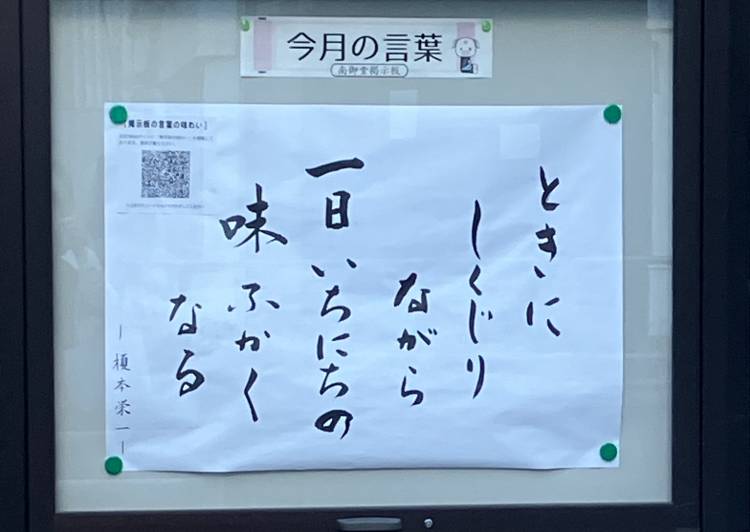 今月の言葉
南御堂掲示板
【掲示板の言葉の味わい】
ときに
しくじり
ながら
一日いちにちの
味ふかく
なる
―榎本栄一―